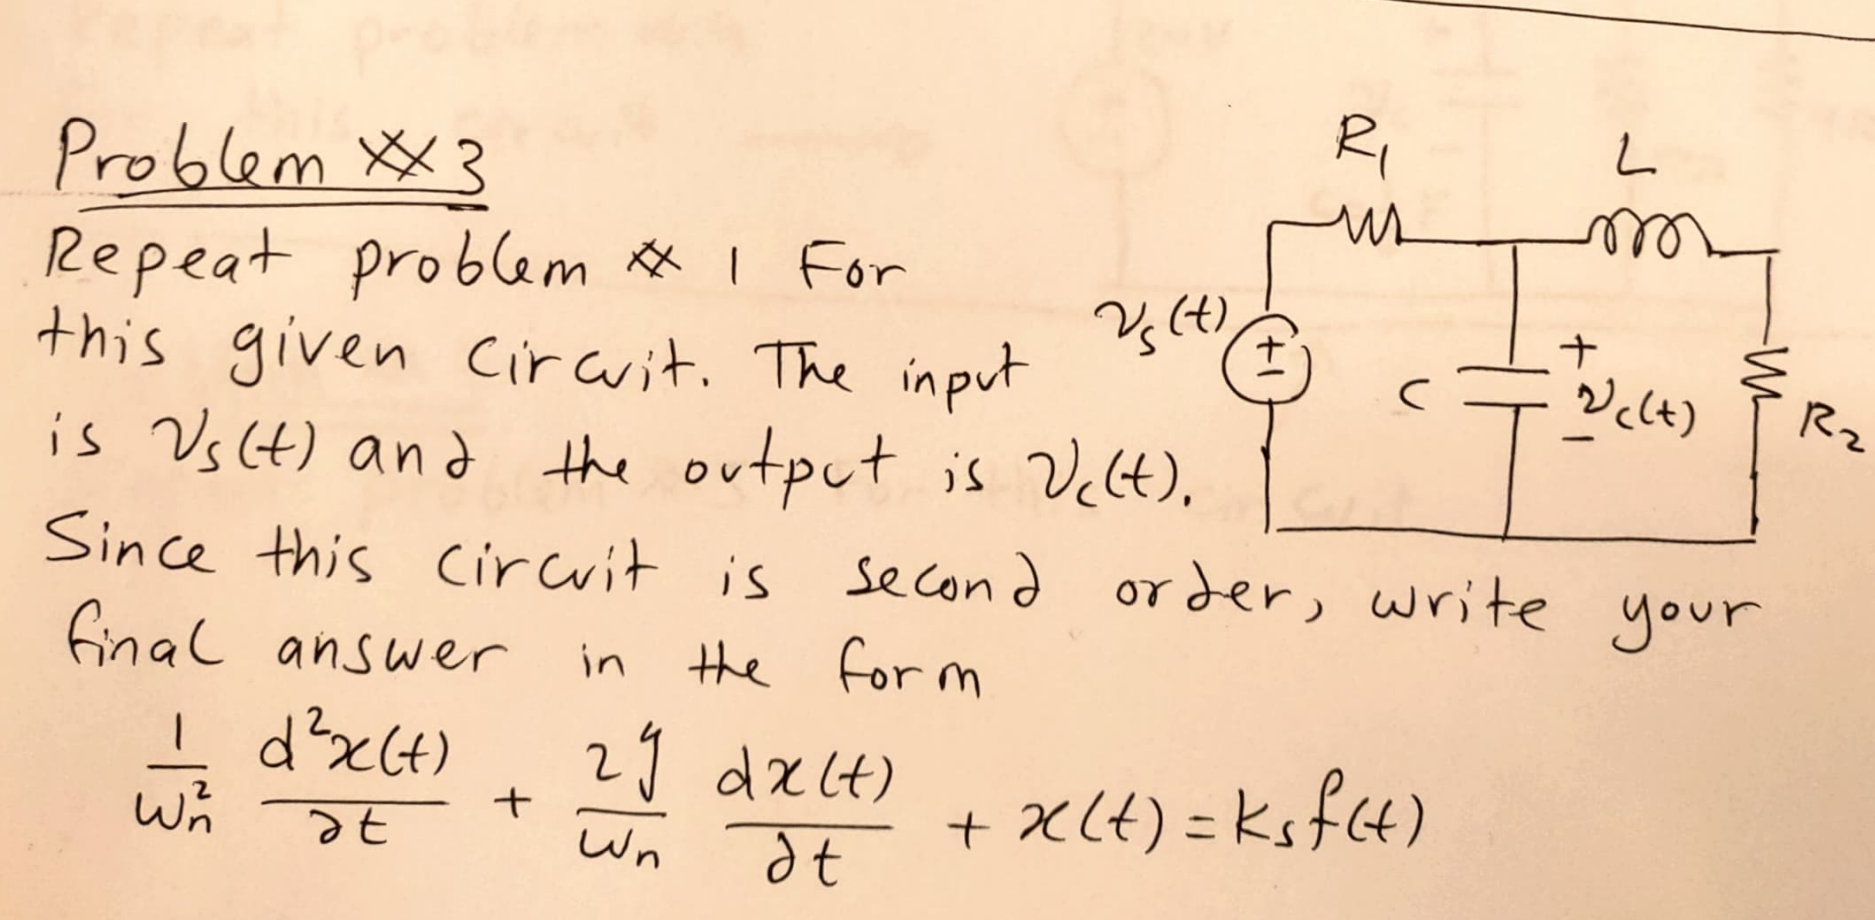 Problem # 3
Repeat problem # 1 For
this given circuit. The input
is vs(t) and the output is vc(t).
Since this circuit is second order, write your
final answer in the form
1/ωn² d²x(t)/dt + 2ζ/ωn dx(t)/dt + x(t) = Ks f(t)
R1
L
vs(t)
+
-
C
+
vc(t)
-
R2